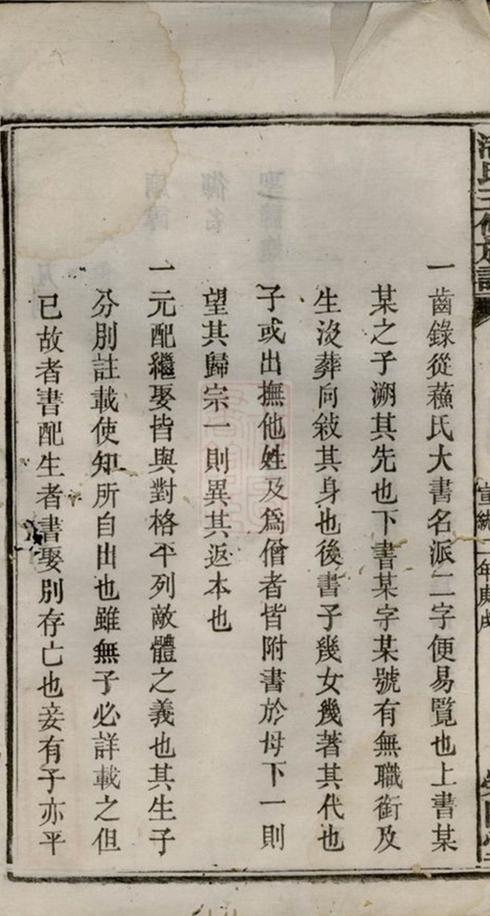 一齒錄從蘓氏大書名派二字便易覽也上書某
某之子溯其先也下書某字某號有無職銜及
生沒葬向敍其身也後書子幾女幾著其代也
子或出撫他姓及爲僧者皆附書於母下一則
望其歸宗一則異其返本也
一元配繼娶皆與對格平列敵體之義也其生子
分別註載使知所自出也雖無子必詳載之但
已故者書配生者書娶別存亡也妾有子亦平